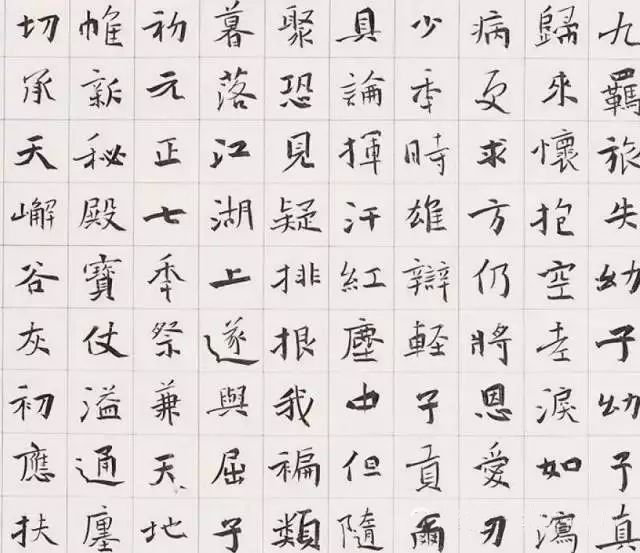 九羈旅失幼子幼子真
歸來懷抱空老淚如瀉
病更求方仍將恩愛刃
少年時雄辯輕子貢爾
具論揮汗紅塵中但隨
聚恐見疑排拫我褊類
暮落江湖上遂與屈子
初元正七年祭兼天地
帷新秘殿寶仗溢通廛
切承天嶰谷灰初應扶